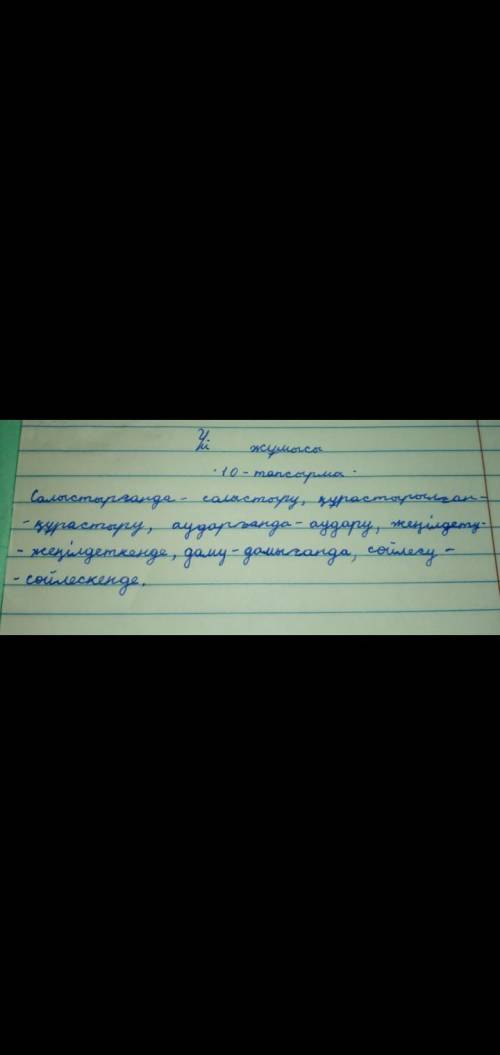 Үй жұмысы
10-тапсырма.
Салыстырғанда - салыстыру, құрастырылған-
- құрастыру, аударғанда - аудару, жеңілдету-
- жеңілдеткенде, даму - дамығанда, сөйлесу -
- сөйлескенде.